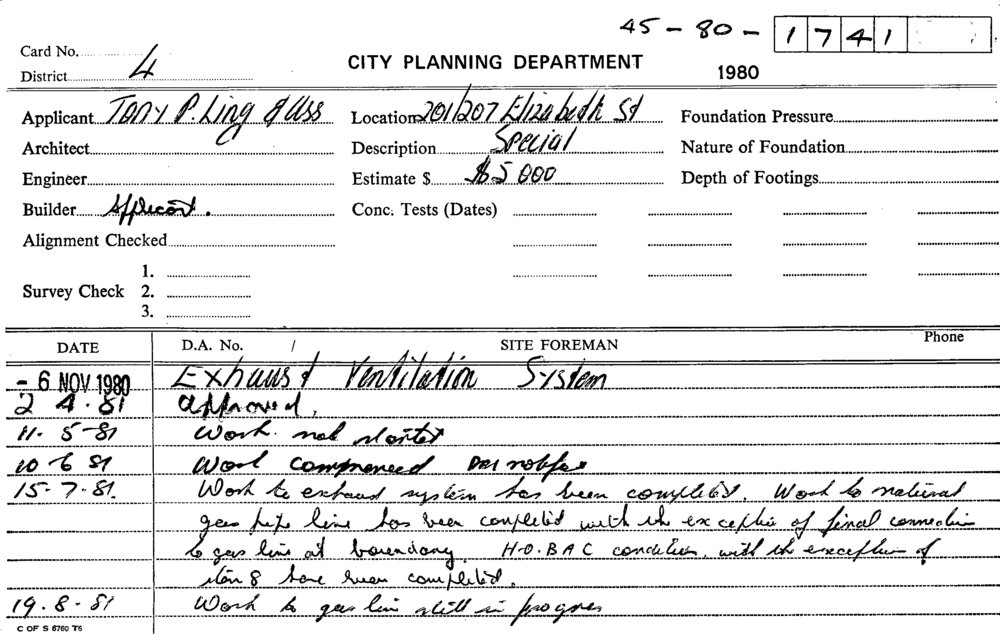 45 - 80 - 1741
Card No.
District 4
CITY PLANNING DEPARTMENT
1980
Applicant Tony P. Ling & Ass
Location 201/207 Elizabeth St
Foundation Pressure
Architect
Description Special
Nature of Foundation
Engineer
Estimate $ $5 000
Depth of Footings
Builder Applicant.
Conc. Tests (Dates)
Alignment Checked
1.
Survey Check 2.
3.
DATE D.A. No. / SITE FOREMAN Phone
- 6 NOV 1980 Exhaust Ventilation System
2 4. 81 Approved.
11. 5-81 Work not started
10 6 81 Work commenced
15-7-81. Work to exhaust system has been completed. Work to natural
gas pipe line has been completed with the exception of final connection
to gas line at boundary. H.O.BAC condition, with the exception of
item 8 have been completed.
19.8-81 Work to gas line still in progress
C OF S 6760 T6